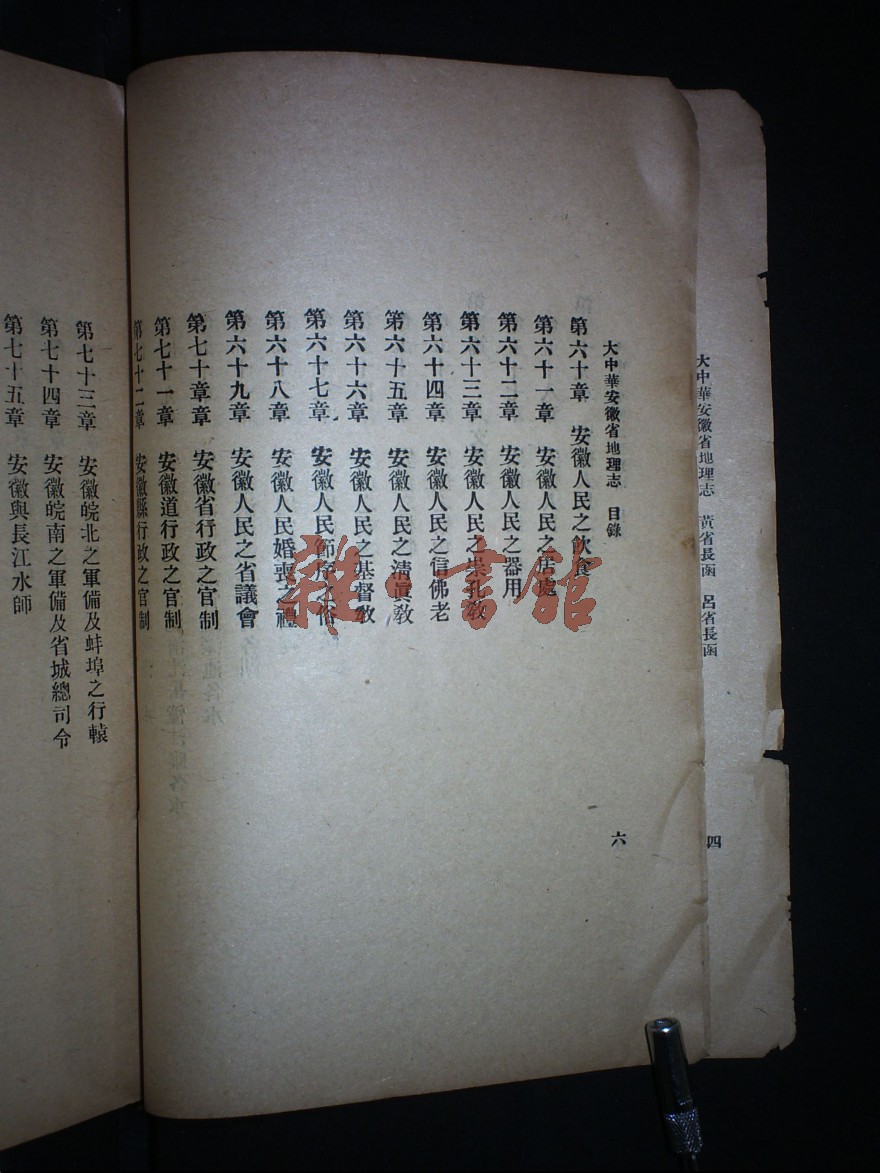 大中華安徽省地理志 黃省長函 呂省長函
四
大中華安徽省地理志 目錄
六
第六十章 安徽人民之飲食
第六十一章 安徽人民之居處
第六十二章 安徽人民之器用
第六十三章 安徽人民之崇孔教
第六十四章 安徽人民之信佛老
第六十五章 安徽人民之清眞敎
第六十六章 安徽人民之基督敎
第六十七章 安徽人民節序之俗
第六十八章 安徽人民婚喪之禮
第六十九章 安徽人民之省議會
第七十章章 安徽省行政之官制
第七十一章 安徽道行政之官制
第七十二章 安徽縣行政之官制
第七十三章 安徽皖北之軍備及蚌埠之行轅
第七十四章 安徽皖南之軍備及省城總司令
第七十五章 安徽與長江水師
雜·書館